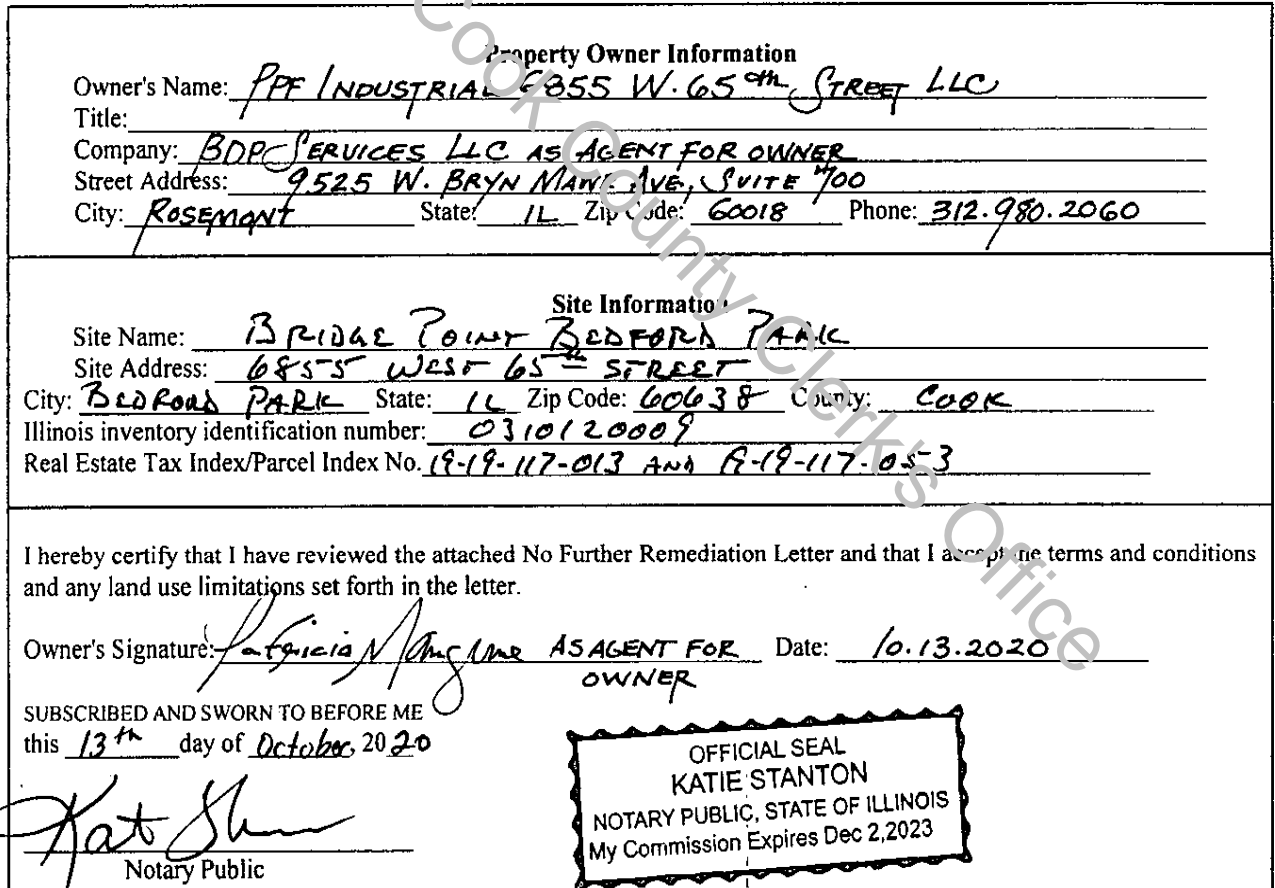 Property Owner Information
Owner's Name: PPF INDUSTRIAL 6855 W. 65th STREET LLC
Title:
Company: BDP SERVICES LLC AS AGENT FOR OWNER
Street Address: 9525 W. BRYN MAWR AVE, SUITE 700
City: ROSEMONT State: IL Zip Code: 60018 Phone: 312.980.2060
Site Information
Site Name: BRIDGE POINT BEDFORD PARK
Site Address: 6855 WEST 65th STREET
City: BEDFORD PARK State: IL Zip Code: 60638 County: COOK
Illinois inventory identification number: 0310120009
Real Estate Tax Index/Parcel Index No. 19-19-117-013 AND 19-19-117-053
I hereby certify that I have reviewed the attached No Further Remediation Letter and that I accept the terms and conditions
and any land use limitations set forth in the letter.
Owner's Signature: Patricia AS AGENT FOR Date: 10.13.2020
OWNER
SUBSCRIBED AND SWORN TO BEFORE ME
this 13th day of October, 2020
Notary Public
OFFICIAL SEAL
KATIE STANTON
NOTARY PUBLIC, STATE OF ILLINOIS
My Commission Expires Dec 2,2023
Cook County Clerk's Office